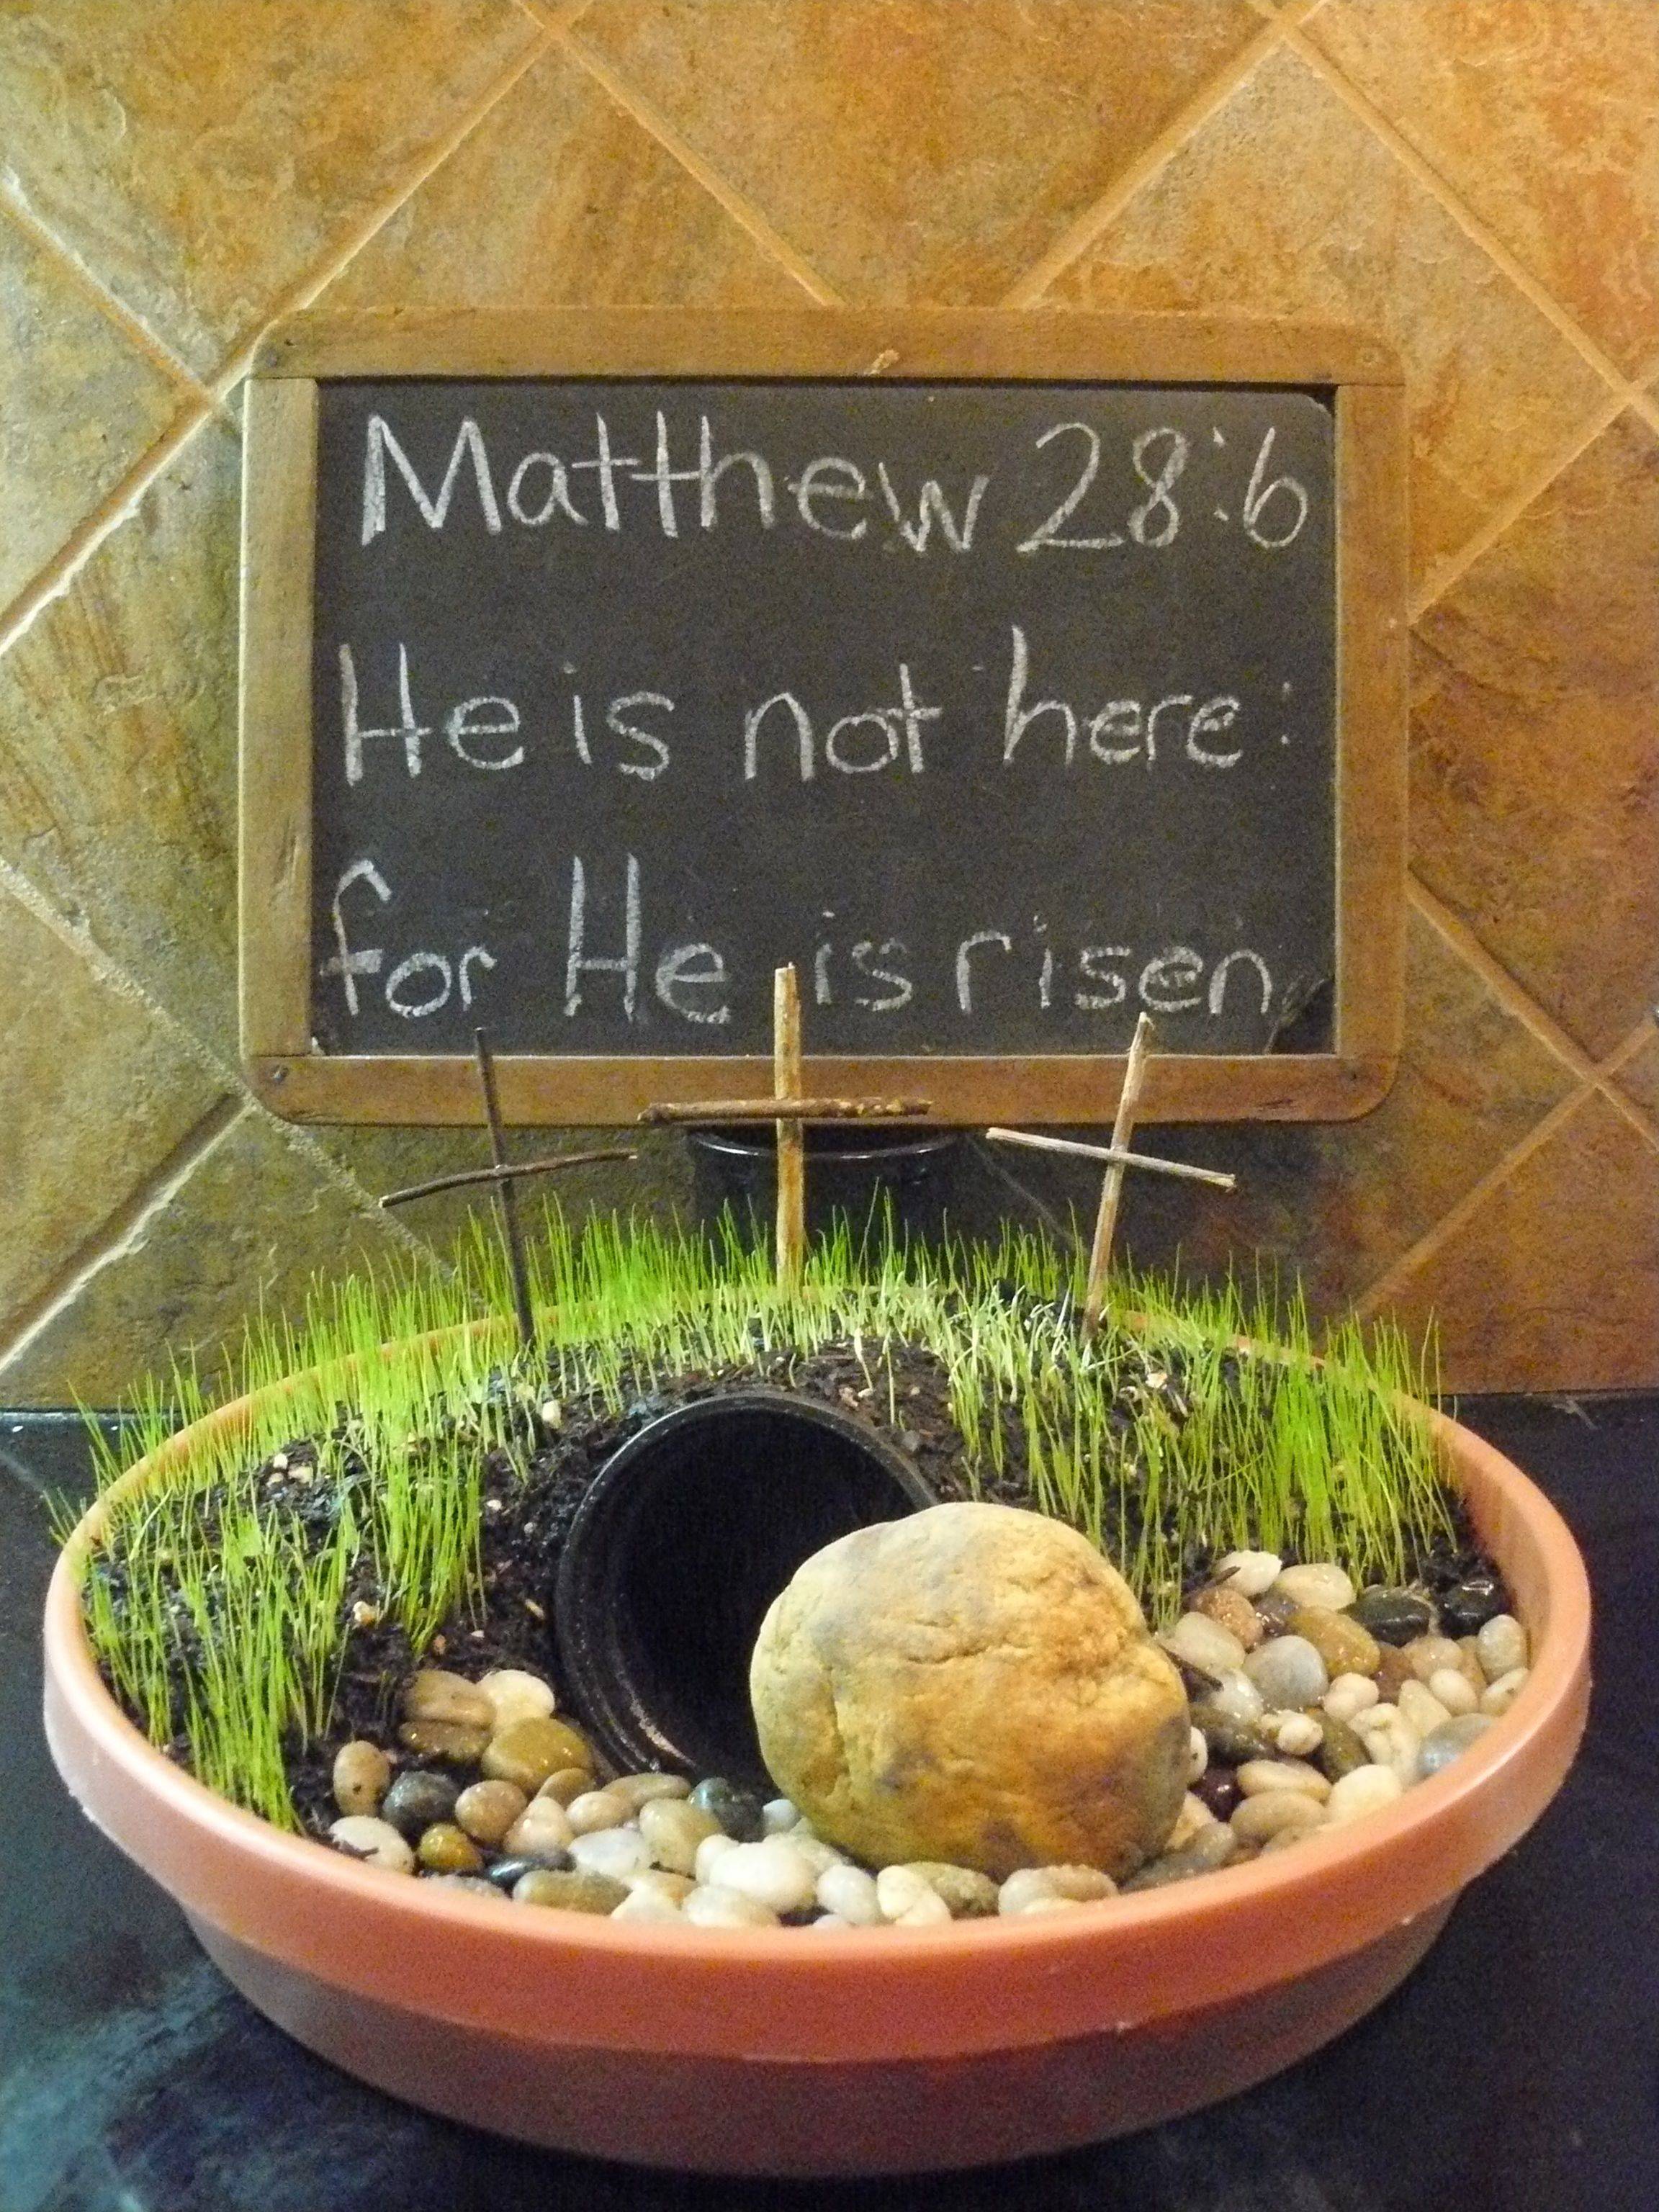 Matthew 28:6
He is not here:
for He is risen